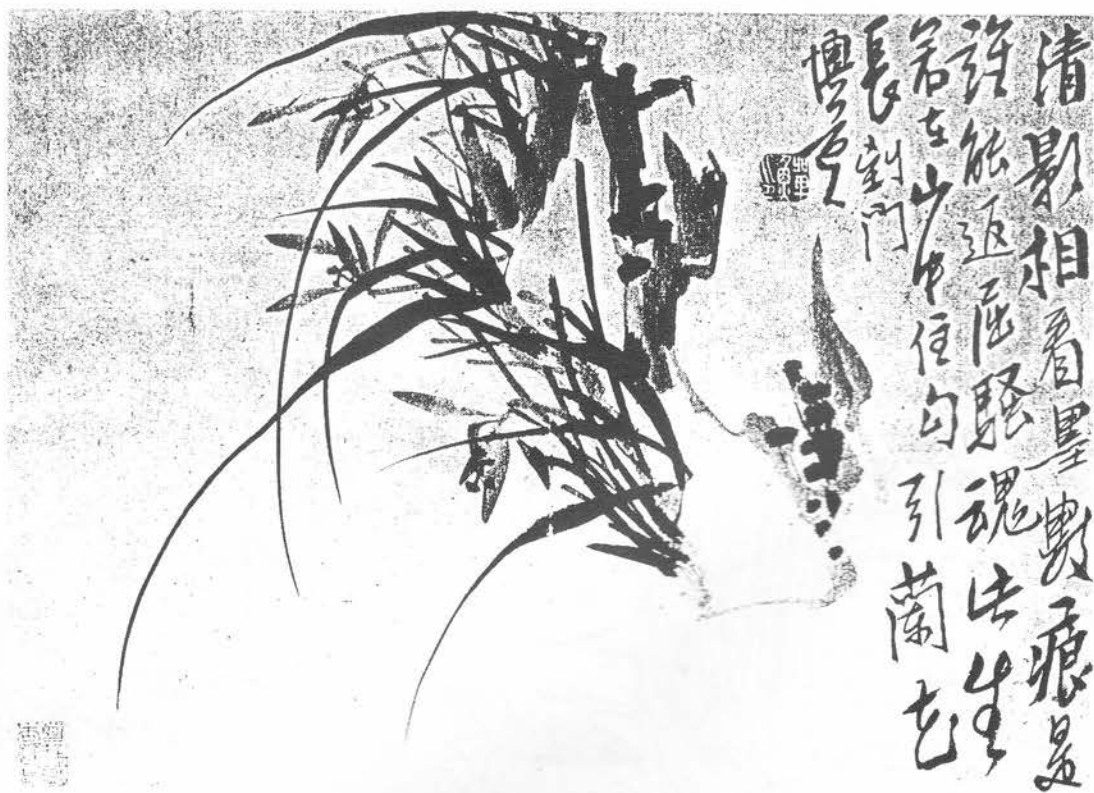 清影相看墨數痕是
誰能返屈騷魂此生
若在山中住勾引蘭花
長到門